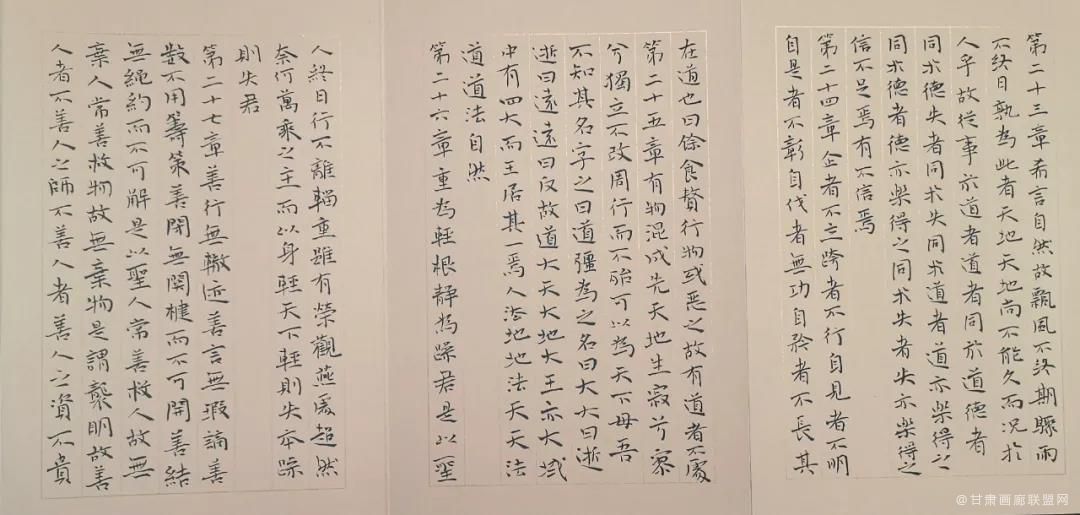 第二十三章希言自然故飄風不終期驟雨
不終日孰為此者天地天地尚不能久而况於
人乎故從事於道者道者同於道德者
同於德失者同於失同於道者道亦樂得之
同於德者德亦樂得之同於失者失亦樂得之
信不足焉有不信焉
第二十四章企者不立跨者不行自見者不明
自是者不彰自伐者無功自矜者不長其
在道也曰餘食贅行物或惡之故有道者不處
第二十五章有物混成先天地生寂兮寥
兮獨立不改周行而不殆可以為天下母吾
不知其名字之曰道彊為之名曰大大曰逝
逝曰遠遠曰反故道大天大地大王亦大域
中有四大而王居其一焉人法地地法天天法
道道法自然
第二十六章重為輕根靜為躁君是以聖
人終日行不離輜重雖有榮觀燕處超然
奈何萬乘之主而以身輕天下輕則失本躁
則失君
第二十七章善行無轍迹善言無瑕謫善
數不用籌策善閉無關楗而不可開善結
無繩約而不可解是以聖人常善救人故無
棄人常善救物故無棄物是謂襲明故善
人者不善人之師不善人者善人之資不貴
@甘肃画廊联盟网